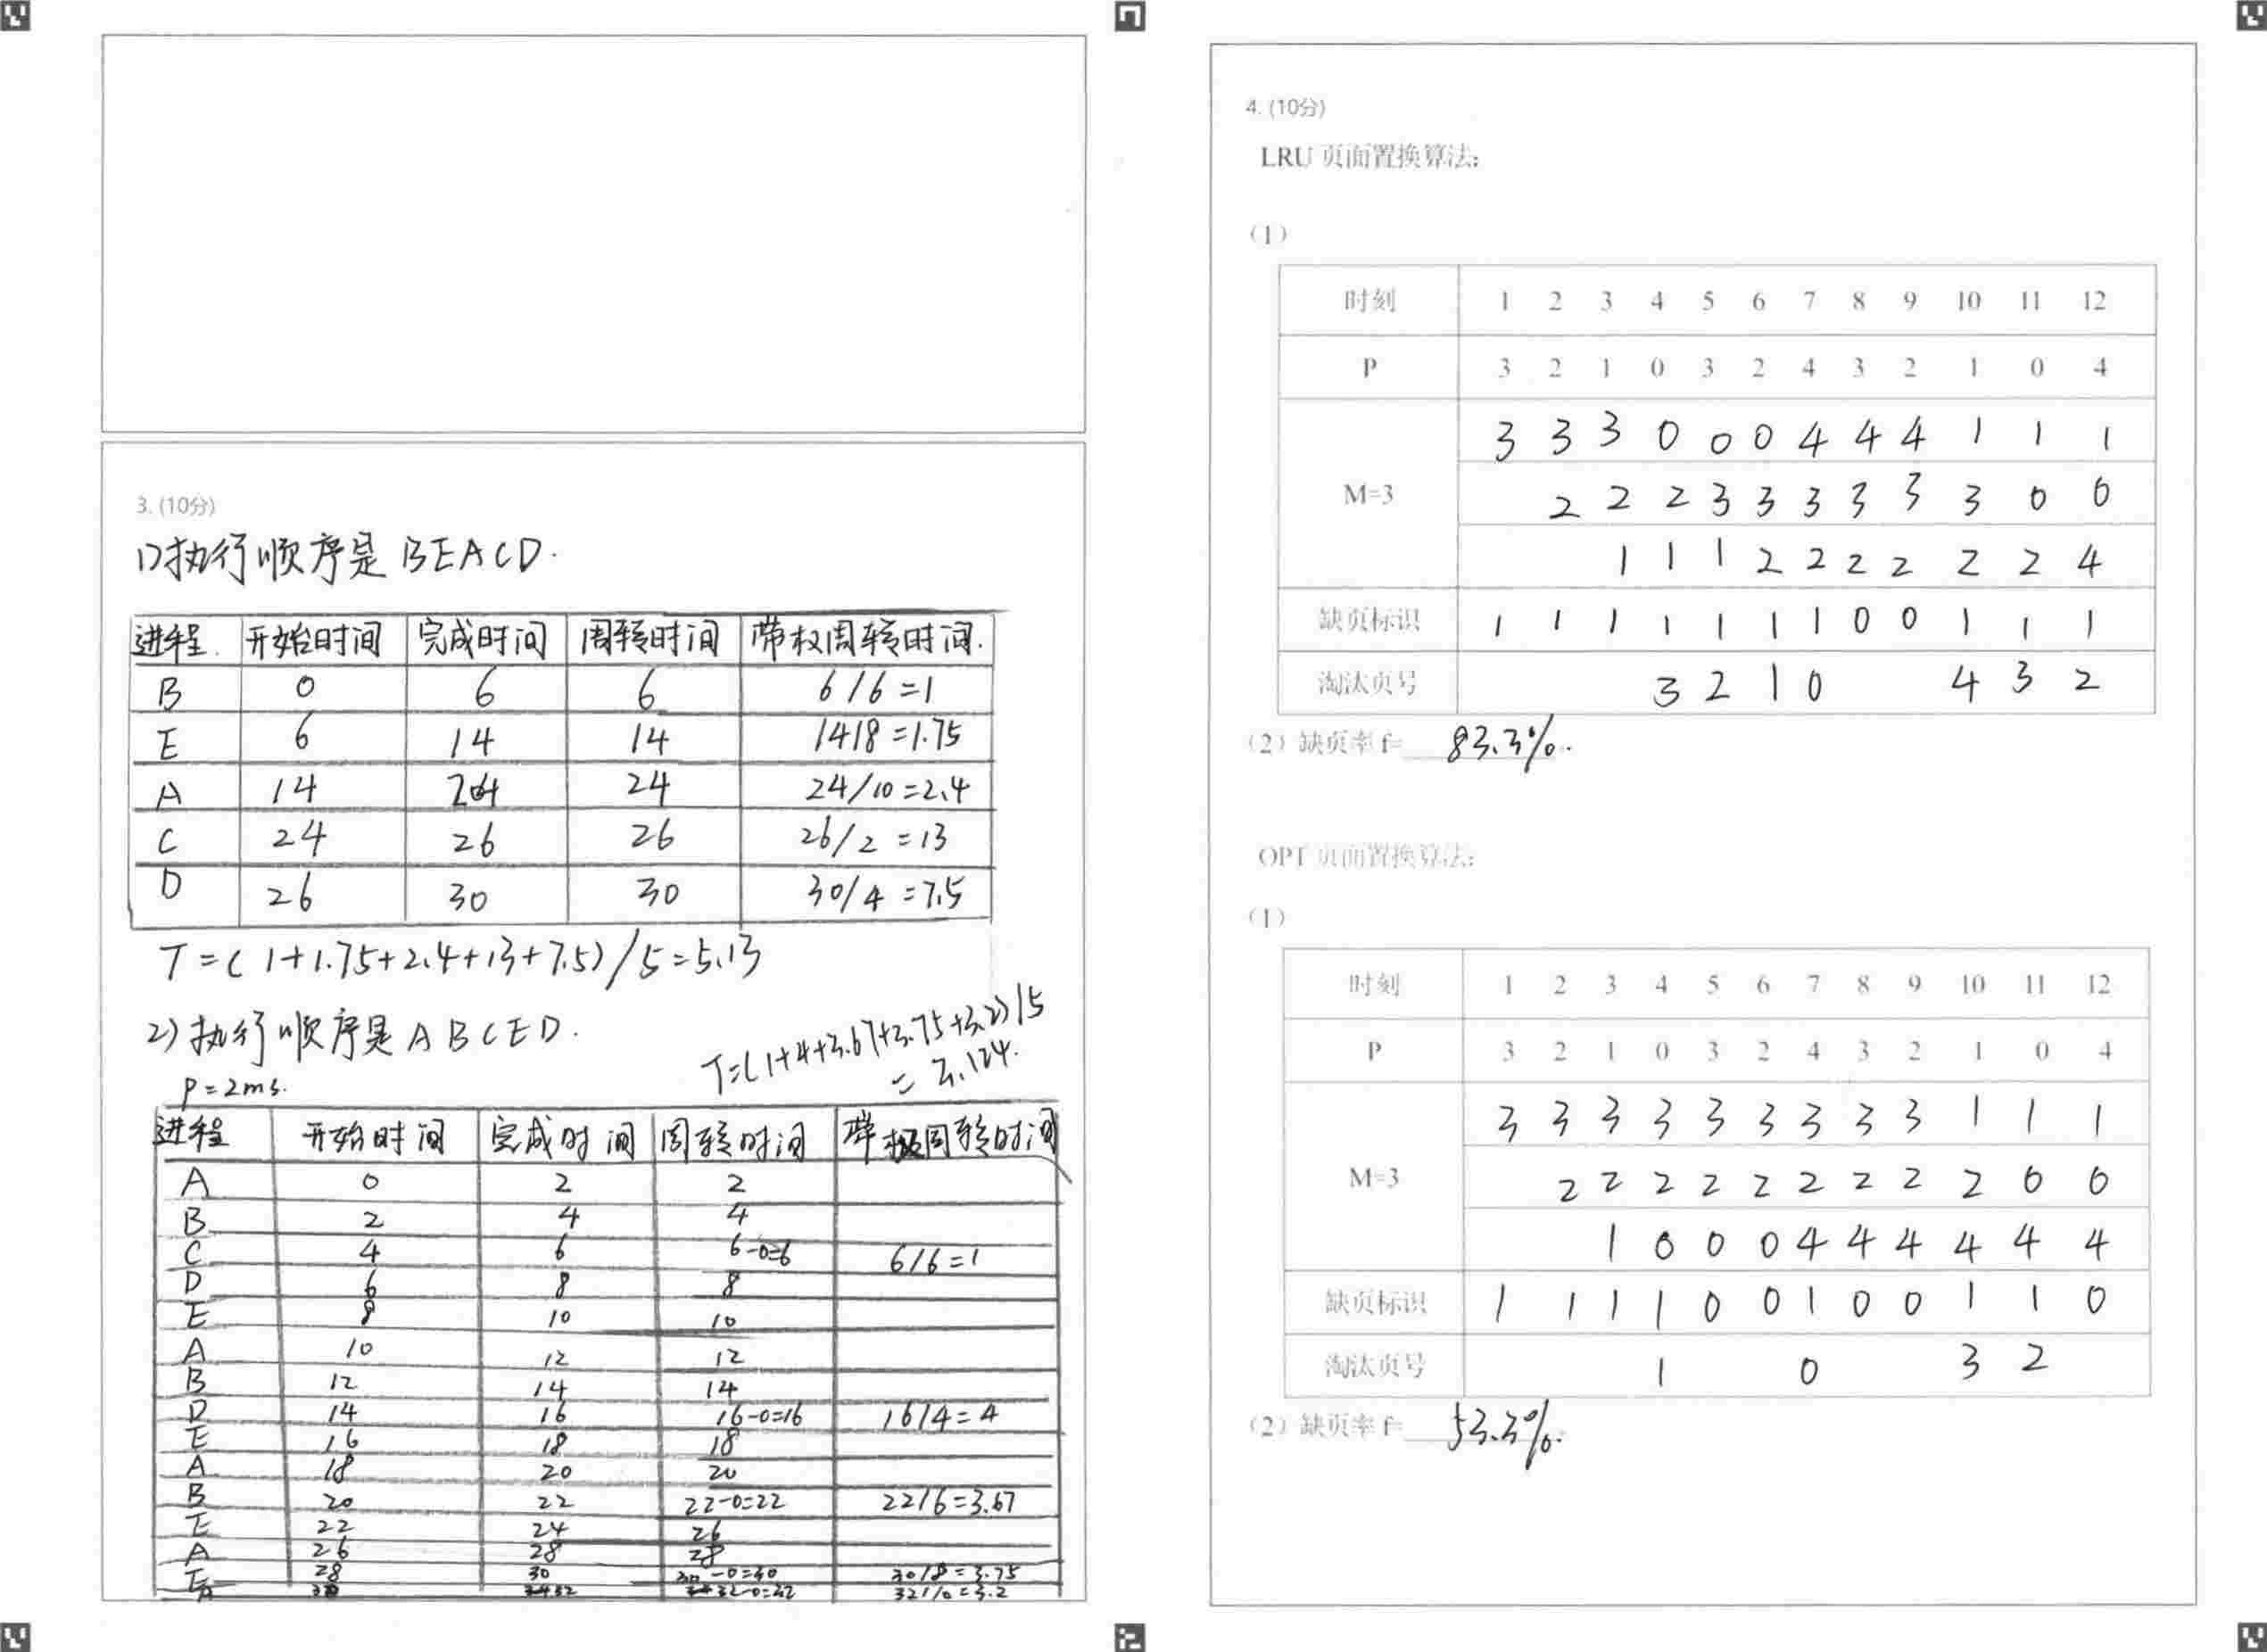 3. (10分)
1)执行顺序是 BEACD.
进程. 开始时间 完成时间 周转时间 带权周转时间.
B 0 6 6 6/6=1
E 6 14 14 14/8=1.75
A 14 24 24 24/10=2.4
C 24 26 26 26/2=13
D 26 30 30 30/4=7.5
T=(1+1.75+2.4+13+7.5)/5=5.13
2)执行顺序是ABCED.
T=(1+4+3.67+3.75+3.2)/5
=3.124.
P=2ms.
进程 开始时间 完成时间 周转时间 带权周转时间
A 0 2 2
B 2 4 4
C 4 6 6-0=6 6/6=1
D 6 8 8
E 8 10 10
A 10 12 12
B 12 14 14
D 14 16 16-0=16 16/4=4
E 16 18 18
A 18 20 20
B 20 22 22-0=22 22/6=3.67
E 22 24 26
A 26 28 28
E 28 30 30-0=30 30/8=3.75
A 32 32-0=32 32/10=3.2
4. (10分)
LRU 页面置换算法:
(1)
时刻 1 2 3 4 5 6 7 8 9 10 11 12
P 3 2 1 0 3 2 4 3 2 1 0 4
3 3 3 0 0 0 4 4 4 1 1 1
M=3 2 2 2 3 3 3 3 3 3 0 0
1 1 1 2 2 2 2 2 2 4
缺页标识 1 1 1 1 1 1 1 0 0 1 1 1
淘汰页号 3 2 1 0 4 3 2
(2) 缺页率 f= 83.3%.
OPT 页面置换算法:
(1)
时刻 1 2 3 4 5 6 7 8 9 10 11 12
P 3 2 1 0 3 2 4 3 2 1 0 4
3 3 3 3 3 3 3 3 3 1 1 1
M=3 2 2 2 2 2 2 2 2 2 0 0
1 0 0 0 4 4 4 4 4 4
缺页标识 1 1 1 1 0 0 1 0 0 1 1 0
淘汰页号 1 0 3 2
(2) 缺页率 f= 53.3%.